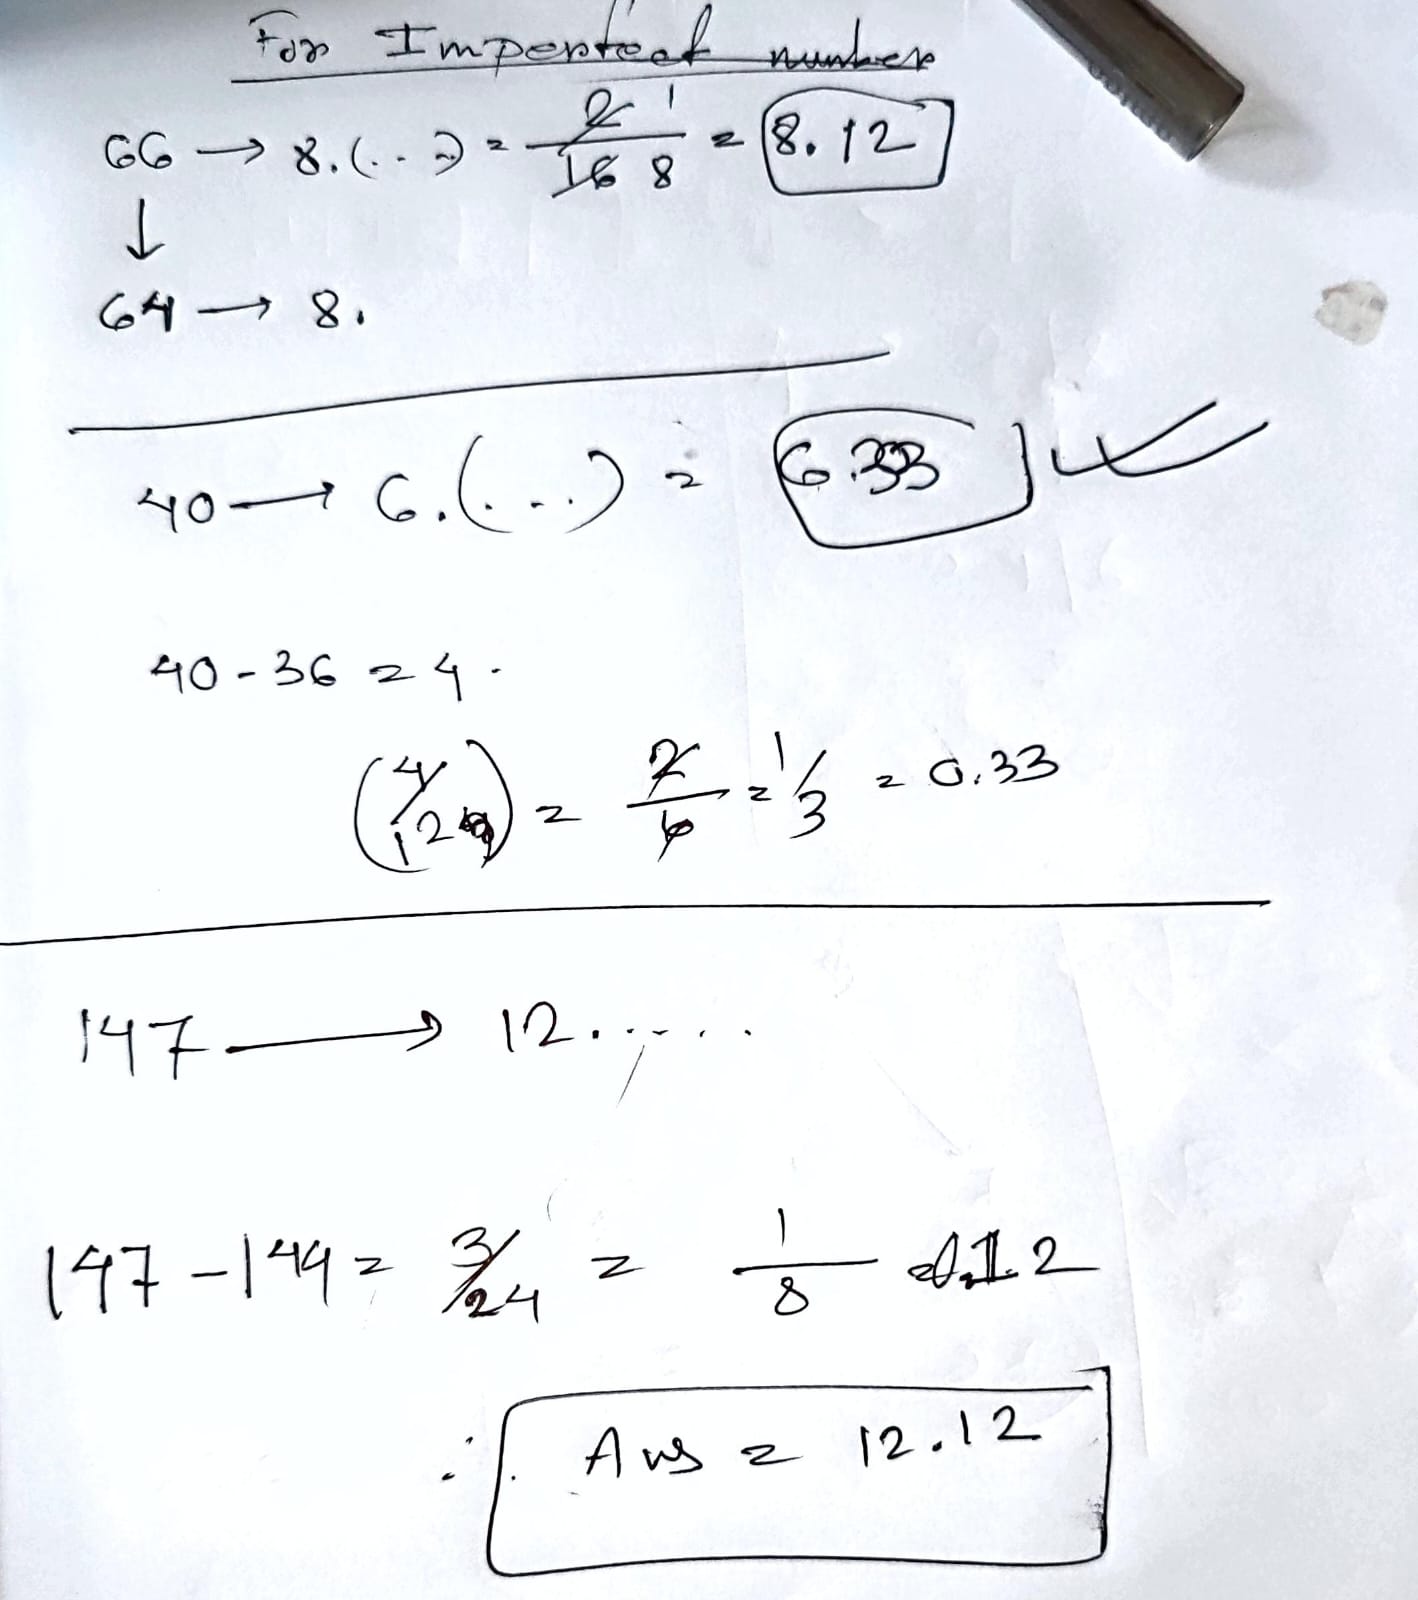 For Imperfect number
66 → 8.(...) = 2/16 1/8 = 8.12
↓
64 → 8.
40 → 6.(...) = 6.33
40 - 36 = 4.
(4/12) = 2/6 = 1/3 = 0.33
147 → 12.....
147 - 144 = 3/24 = 1/8 = 0.12
∴ Ans = 12.12